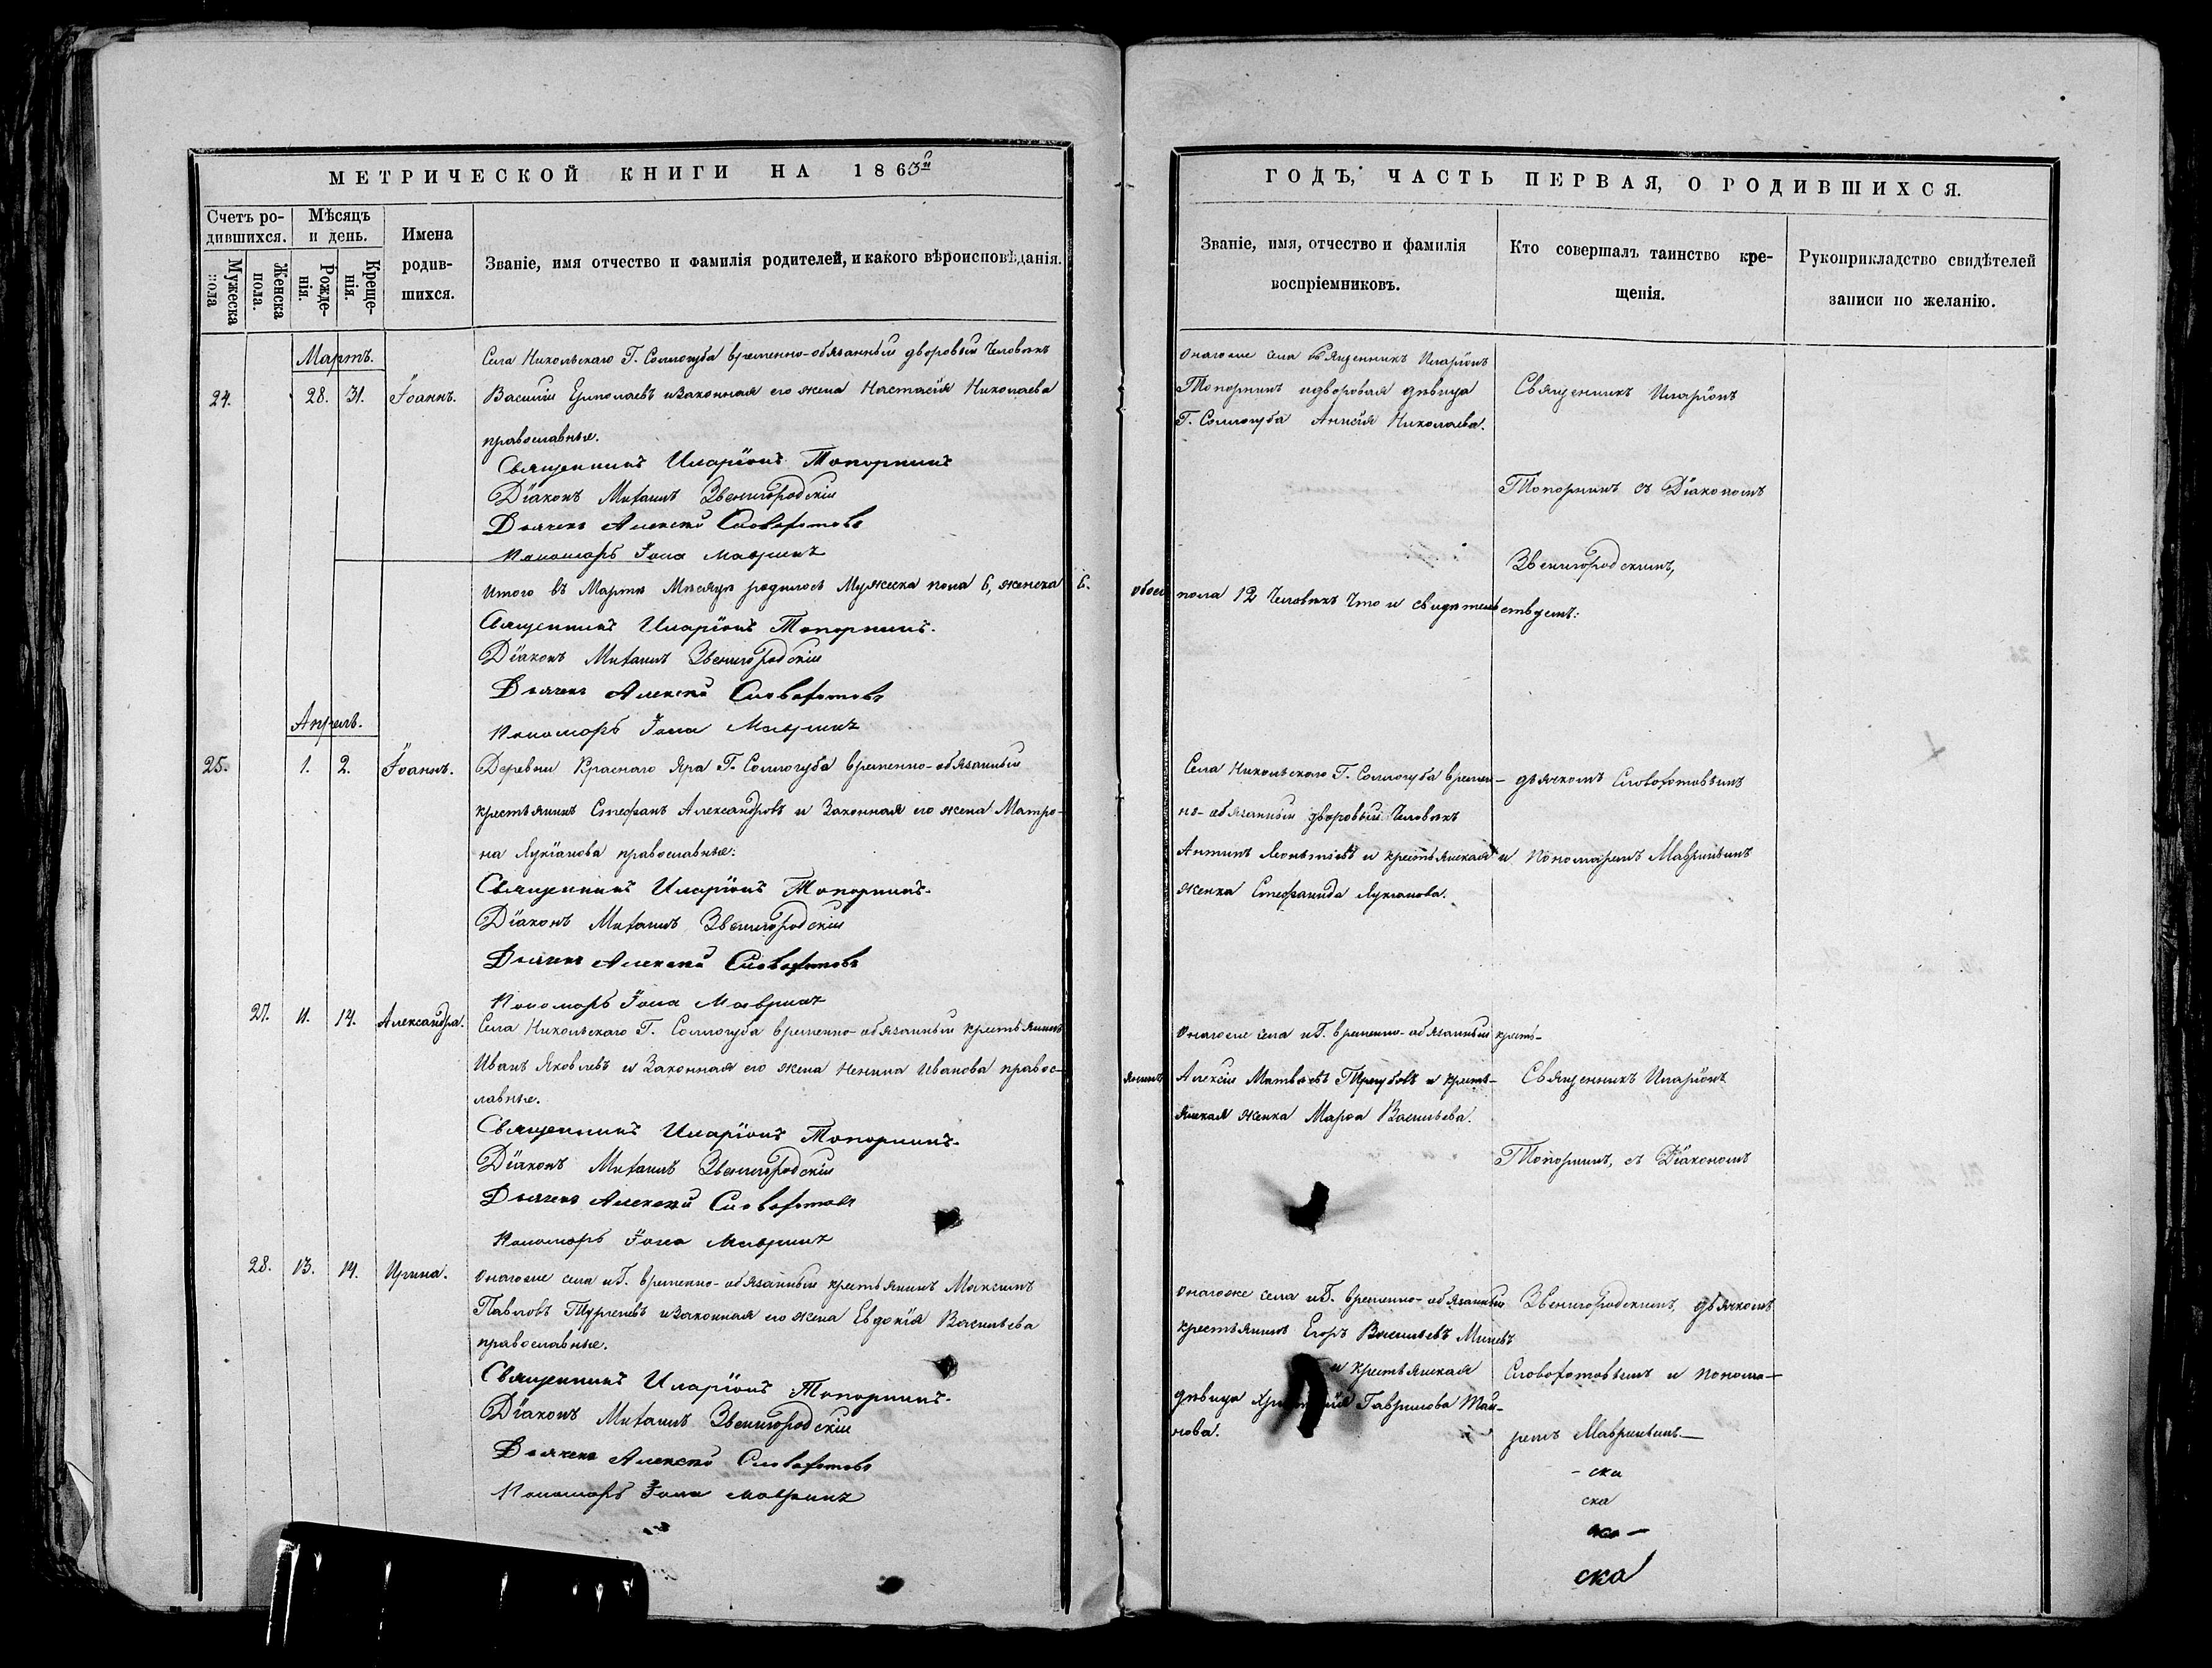 МЕТРИЧЕСКОЙ КНИГИ НА 1863й
Счетъ ро-
дившихся.
Мужеска
пола
Женска
пола.
Мѣсяцъ
и день.
Рожде-
нія.
Креще-
нія.
Имена
родив-
шихся.
Званіе, имя отчество и фамилія родителей, и какого вѣроисповѣданія.
Мартъ.
24. 28. 31. Іоаннъ.
Села Никольскаго Г. Соллогуба временно-обязанный дворовый человѣкъ
Василій Ермолаевъ и законная его жена Настасія Николаева
православные.
Священникъ Иларіонъ Топорнинъ
Діаконъ Михаилъ Звенигородскій
Дьячекъ Алексѣй Словохотовъ
Пономарь Іона Мавринъ
Итого въ Мартѣ Мѣсяцѣ родилось Мужеска пола 6, женска 6.
Священникъ Иларіонъ Топорнинъ.
Діаконъ Михаилъ Звенигородскій
Дьячекъ Алексѣй Словохотовъ
Пономарь Іона Мавринъ
Апрель.
25. 1. 2. Іоаннъ.
Деревни Краснаго Яра Г. Соллогуба временно-обязанный
крестьянинъ Стефанъ Александровъ и Законная его жена Матро-
на Лукіанова православные.
Священникъ Иларіонъ Топорнинъ.
Діаконъ Михаилъ Звенигородскій
Дьячекъ Алексѣй Словохотовъ
Пономарь Іона Мавринъ
27. 11. 14. Александра.
Села Никольскаго Г. Соллогуба временно-обязанный крестьянинъ
Иванъ Яковлевъ и Законная его жена Ненила Иванова правос-
лавные.
Священникъ Иларіонъ Топорнинъ.
Діаконъ Михаилъ Звенигородскій
Дьячекъ Алексѣй Словохотовъ
Пономарь Іона Мавринъ
28. 13. 14. Ирина.
Онагоже села и Г. временно-обязанный крестьянинъ Максимъ
Павловъ и Законная его жена Евдокія Васильева
православные.
Священникъ Иларіонъ Топорнинъ.
Діаконъ Михаилъ Звенигородскій
Дьячекъ Алексѣй Словохотовъ
Пономарь Іона Мавринъ
ГОДЪ, ЧАСТЬ ПЕРВАЯ, О РОДИВШИХСЯ.
Званіе, имя, отчество и фамилія
воспріемниковъ.
Кто совершалъ таинство кре-
щенія.
Рукоприкладство свидѣтелей
записи по желанію.
Онагоже села Священникъ Иларіонъ
Топорнинъ и дворовая дѣвица
Г. Соллогуба Анисія Николаева.
Священникъ Иларіонъ
Топорнинъ съ Діакономъ
Звенигородскимъ,
обоего пола 12 человѣкъ Что и свидѣтельствуемъ:
Села Никольскаго Г. Соллогуба времен-
но-обязанный дворовый человѣкъ
Антипъ Леонтіевъ и крестьянская
женка Стефанида Лукіанова.
дьячкомъ Словохотовымъ
и Пономаремъ Мавринымъ
Онагоже села и Г. временно-обязанный кресть-
янинъ Алексій Матвѣевъ и кресть-
янская женка Марѳа Васильева.
Священникъ Иларіонъ
Топорнинъ, съ Діакономъ
Онагоже села и Г. временно-обязанный
крестьянинъ Егоръ Васильевъ
и крестьянская
дѣвица Гаврилова
нова.
Звенигородскимъ, дьячкомъ
Словохотовымъ и понома-
ремъ Мавринымъ.—
- ска
ска
ска —
ска